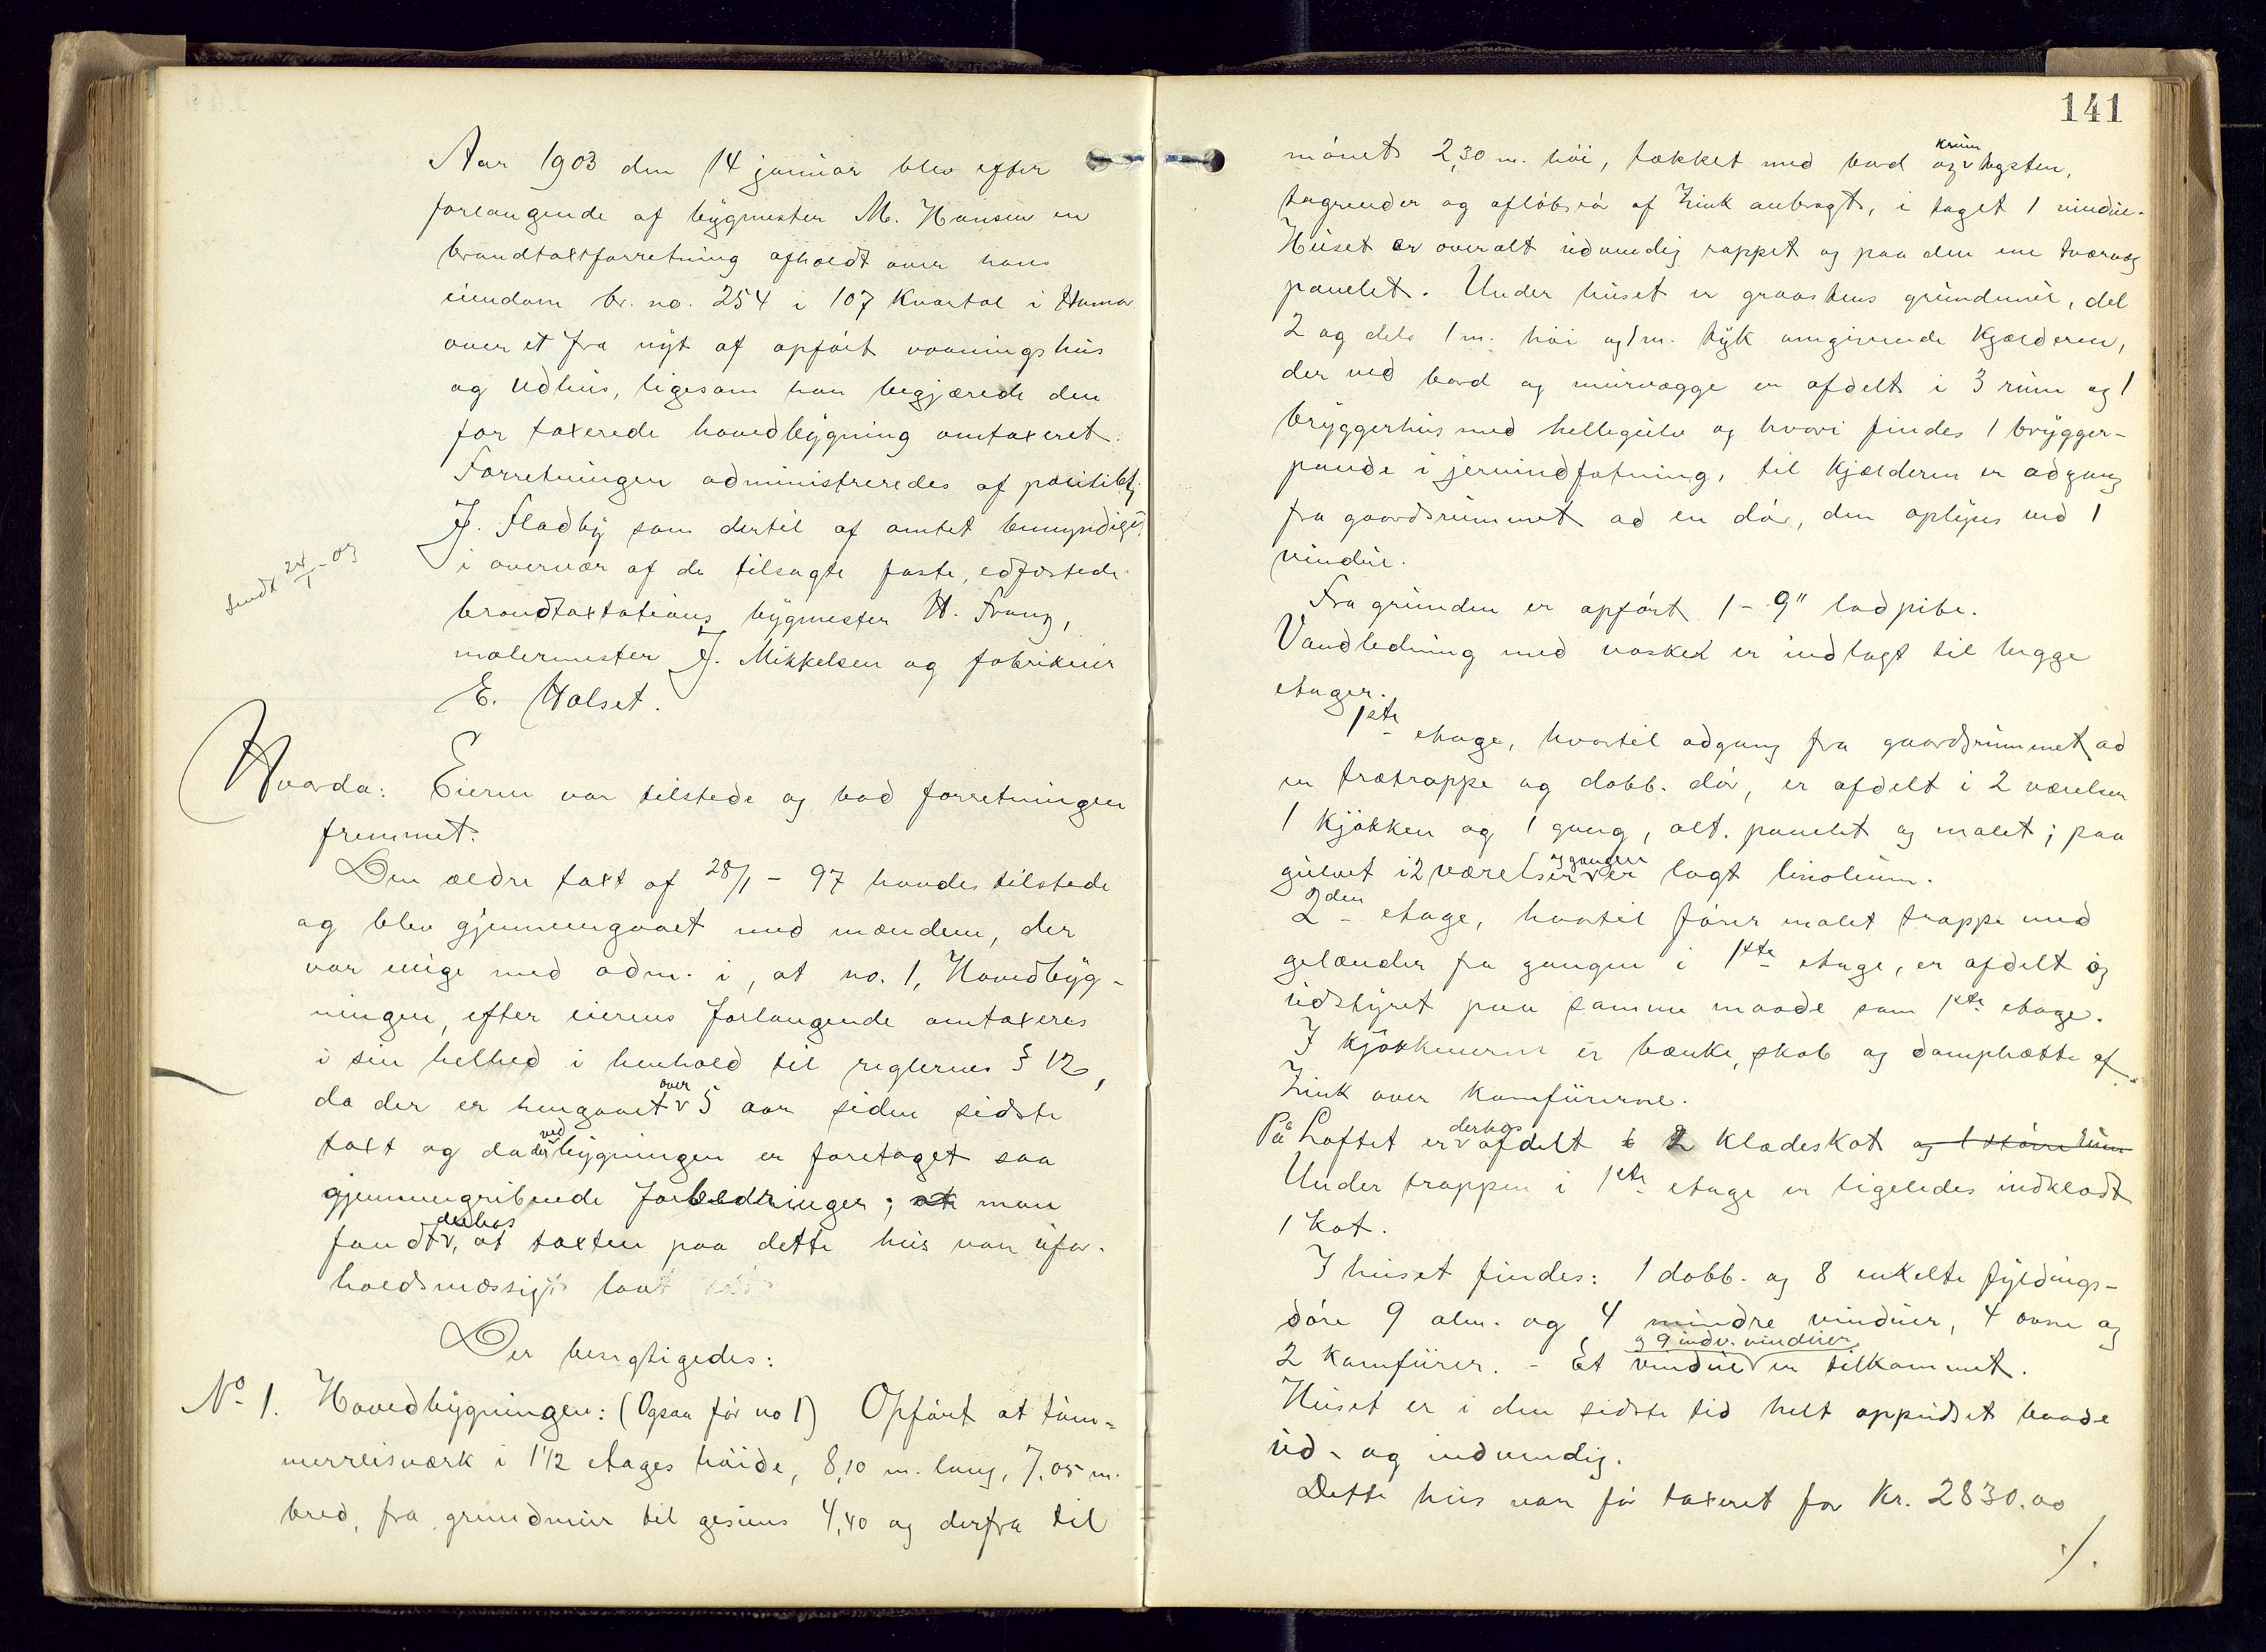 Aar 1903 den 14 januar blev efter
forlangende af bygmester M. Hansen en
brandtaxtforretning afholdt over hans
eiendom br. no. 254 i 107 Kvartal i Hamar
over et fra nyt af opført vaaningshus
og udhus, ligesom han begjærede den
før taxerede hovedbygning omtaxeret.
Forretningen administreredes af politibtj.
J. Fladby som dertil af amtet bemyndiget
i overvær af de tilsagte faste, edfæstede
Sendt 24/1 - 03
brandtaxtationsmænd bygmester H. Franz,
malermester J. Mikkelsen og fabrikeier
E. Halset.
Hvorda: Eieren var tilstede og bad forretningen
fremmet.
Den ældre taxt af 28/1 - 97 havdes tilstede
og blev gjennemgaaet med mændene, der
var enige med adm. i, at no. 1, Hovedbyg-
ningen, efter eierens forlangende omtaxeres
i sin helhed i henhold til reglernes § 12,
da der er hengaaet over 5 aar siden sidste
taxt og da der ved bygningen er foretaget saa
gjennemgribende forbedringer; at man
fandt derhos, at taxten paa dette hus var ufor-
holdsmæssigt lavt
Der besigtigedes:
No 1. Hovedbygningen: (Ogsaa før no 1) Opført at tøm-
merreisværk i 1 1/2 etages høide, 8,10 m. lang, 7,05 m.
bred, fra grundmur til gesims 4,40 og derfra til
141
mønet 2,30 m. høi, tækket med bord og krum tagsten,
tagrender og afløbsrør af Zink anbragt, i taget 1 vindue.
Huset er overalt udvendig rappet og paa den ene tværvæg
panelet. Under huset er graastens grundmur, del
2 og dels 1 m. høi og 1 m. tyk omgivende Kjælderen,
der ved bord og murvægge er afdelt i 3 rum og 1
bryggerhus med hellegulv og hvori findes 1 brygger-
pande i jernindfatning, til Kjælderen er adgang
fra gaardsrummet ad en dør, den oplyses ved 1
vindue.
Fra grunden er opført 1 - 9" lodpibe.
Vandledning med vasker er indlagt til begge
etager.
1ste etage, hvortil adgang fra gaardsrummet ad
en trætrappe og dobb. dør, er afdelt i 2 værelser
1 kjøkken og 1 gang, alt. panelet og malet; paa
gulvet i 2 værelser og gangen er lagt linolium.
2den etage, hvortil fører malet trappe med
gelænder fra gangen i 1ste etage, er afdelt og
udstyret paa samme maade som 1ste etage.
I kjøkkenerne er bænke, skab og damphætte af
Zink over Komfurerne.
På Loftet er derhos afdelt 2 klædeskot og 1 større rum
Under trappen i 1ste etage er ligeledes indklædt
1 Kot.
I huset findes: 1 dobb. og 8 enkelte fyldings-
døre 9 alm. og 4 mindre vinduer, 4 ovne og
2 Komfurer. - Et vindue og 9 indv. vinduer er tilkommet.
Huset er i den sidste tid helt oppudset baade
ud- og indvendig.
Dette hus var før taxeret for Kr. 2830.00
./.